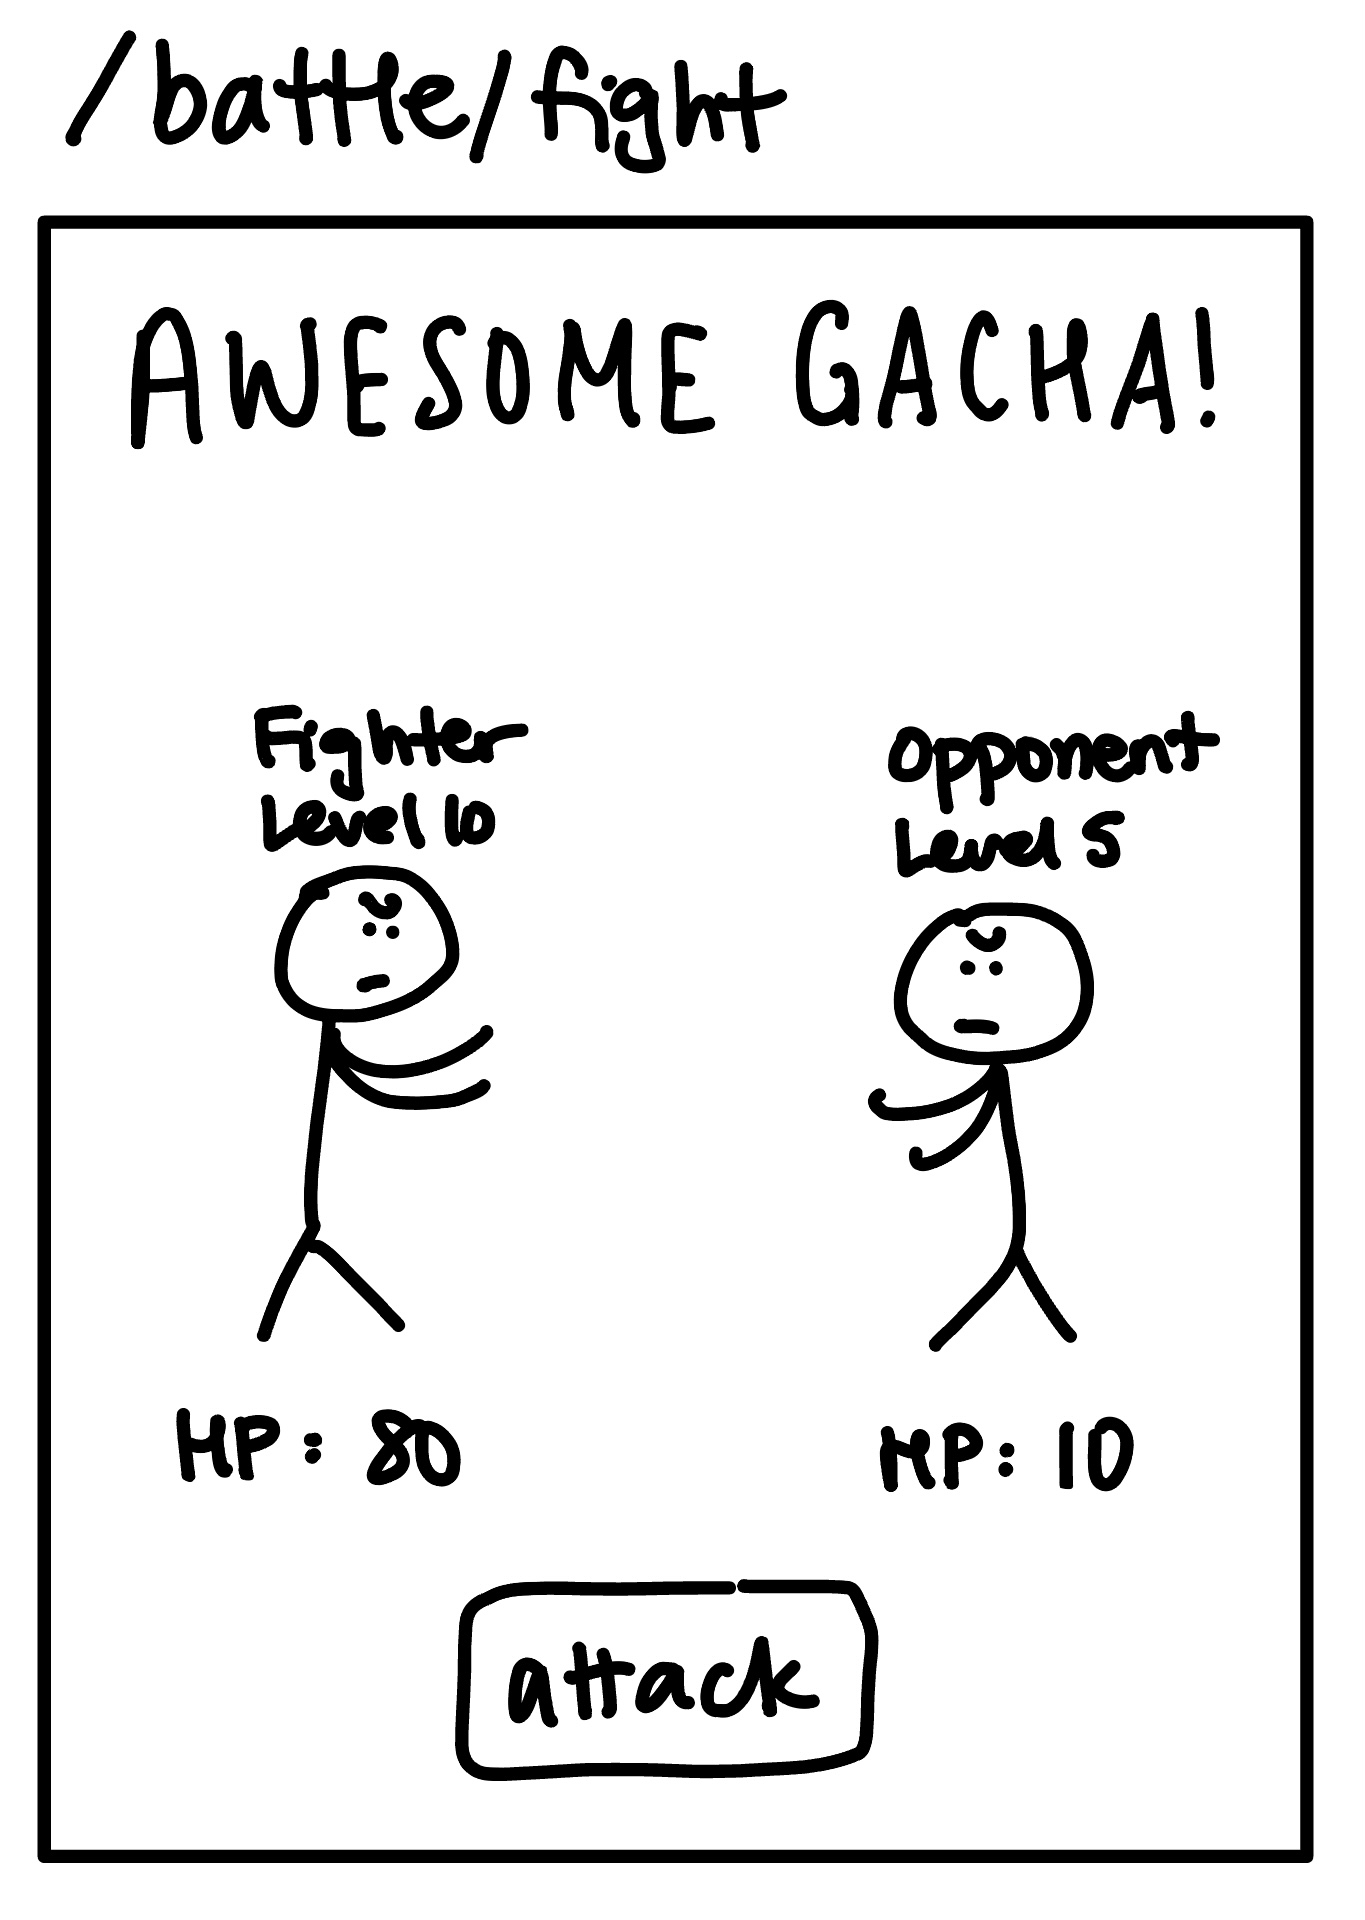 /battle/fight
AWESOME GACHA!
Fighter
Level 10
Opponent
Level 5
HP: 80
HP: 10
attack